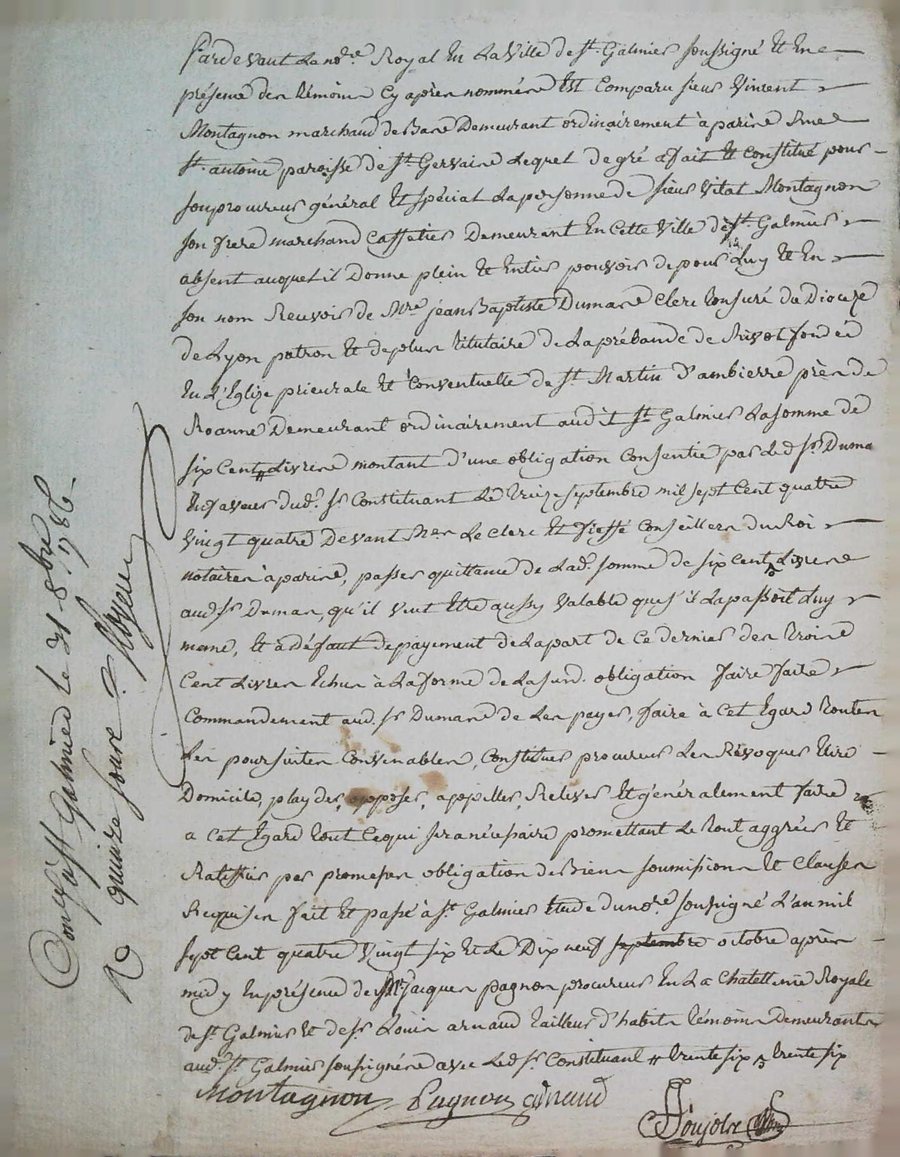 Pardevant Le no.re Royal En La Ville de St. Galmier soussigné Et En
présence des témoins Cy après nommés Est Comparu sieur Vincent
Montagnon marchand de Bas Demeurant ordinairement à paris Rue
St. antoine paroisse de St. Gervais Lequel de gré a fait Et Constitué pour
son procureur général Et spécial La personne de sieur Vital Montagnon
son frere marchand Caffetier Demeurant En Cette Ville de St. Galmier
absent auquel il Donne plein Et Entier pouvoir de pour Luy Et En
son nom Recevoir de Mre. jean Baptiste Dumas Clerc tonsuré du Dioceze
de Lyon patron Et de plus titulaire de La prébande de Rivol fondée
En L'Eglize prieurale Et Conventuelle de St. Martin d'ambierre près de
Roanne Demeurant ordinairement audit St. Galmier La somme de
six Cent Livres montant d'une obligation Consentie par Led. sr. Dumas
En faveur dud. sr. Constituant Le treize septembre mil sept Cent quatre
Vingt quatre Devant Mes Le Clerc Et Conseillers du Roi
notaires à paris, passer quittance de Lad. somme de six Cent Livres
aud. sr. Dumas, qu'il Veut Etre aussy Valable que s'il La passoit Luy
meme, Et à défaut de payement de La part de Ce dernier des trois
Cent Livres Echus à La forme de La sud. obligation faire faire
Commandement aud. sr. Dumas de Les payer, faire à Cet Egard toutes
Les poursuites Convenables, Constituer procureur Les Révoquer Elire
Domicile, playder, opposer, appeller, Relever Et généralement faire
a Cet Egard tout Ce qui sera nécessaire promettant Le tout aggréer Et
Ratiffier par promesses obligation de Biens soumissions Et Clauses
Requises fait Et passé à St. Galmier Etude du no.re soussigné L'an mil
sept Cent quatre Vingt six Et Le Dix neuf septembre octobre après
midy En présence de Jacques pagnon procureur En La Chatellenie Royale
de St. Galmier Et de sr. Louis arnaud tailleur d'habits témoins Demeurants
aud. St. Galmier soussignés avec Led. sr. Constituant trente six trente six
Montagnon Pagnon arnaud
Conté à St. Galmier le 21 8.bre 1786
quinze sous